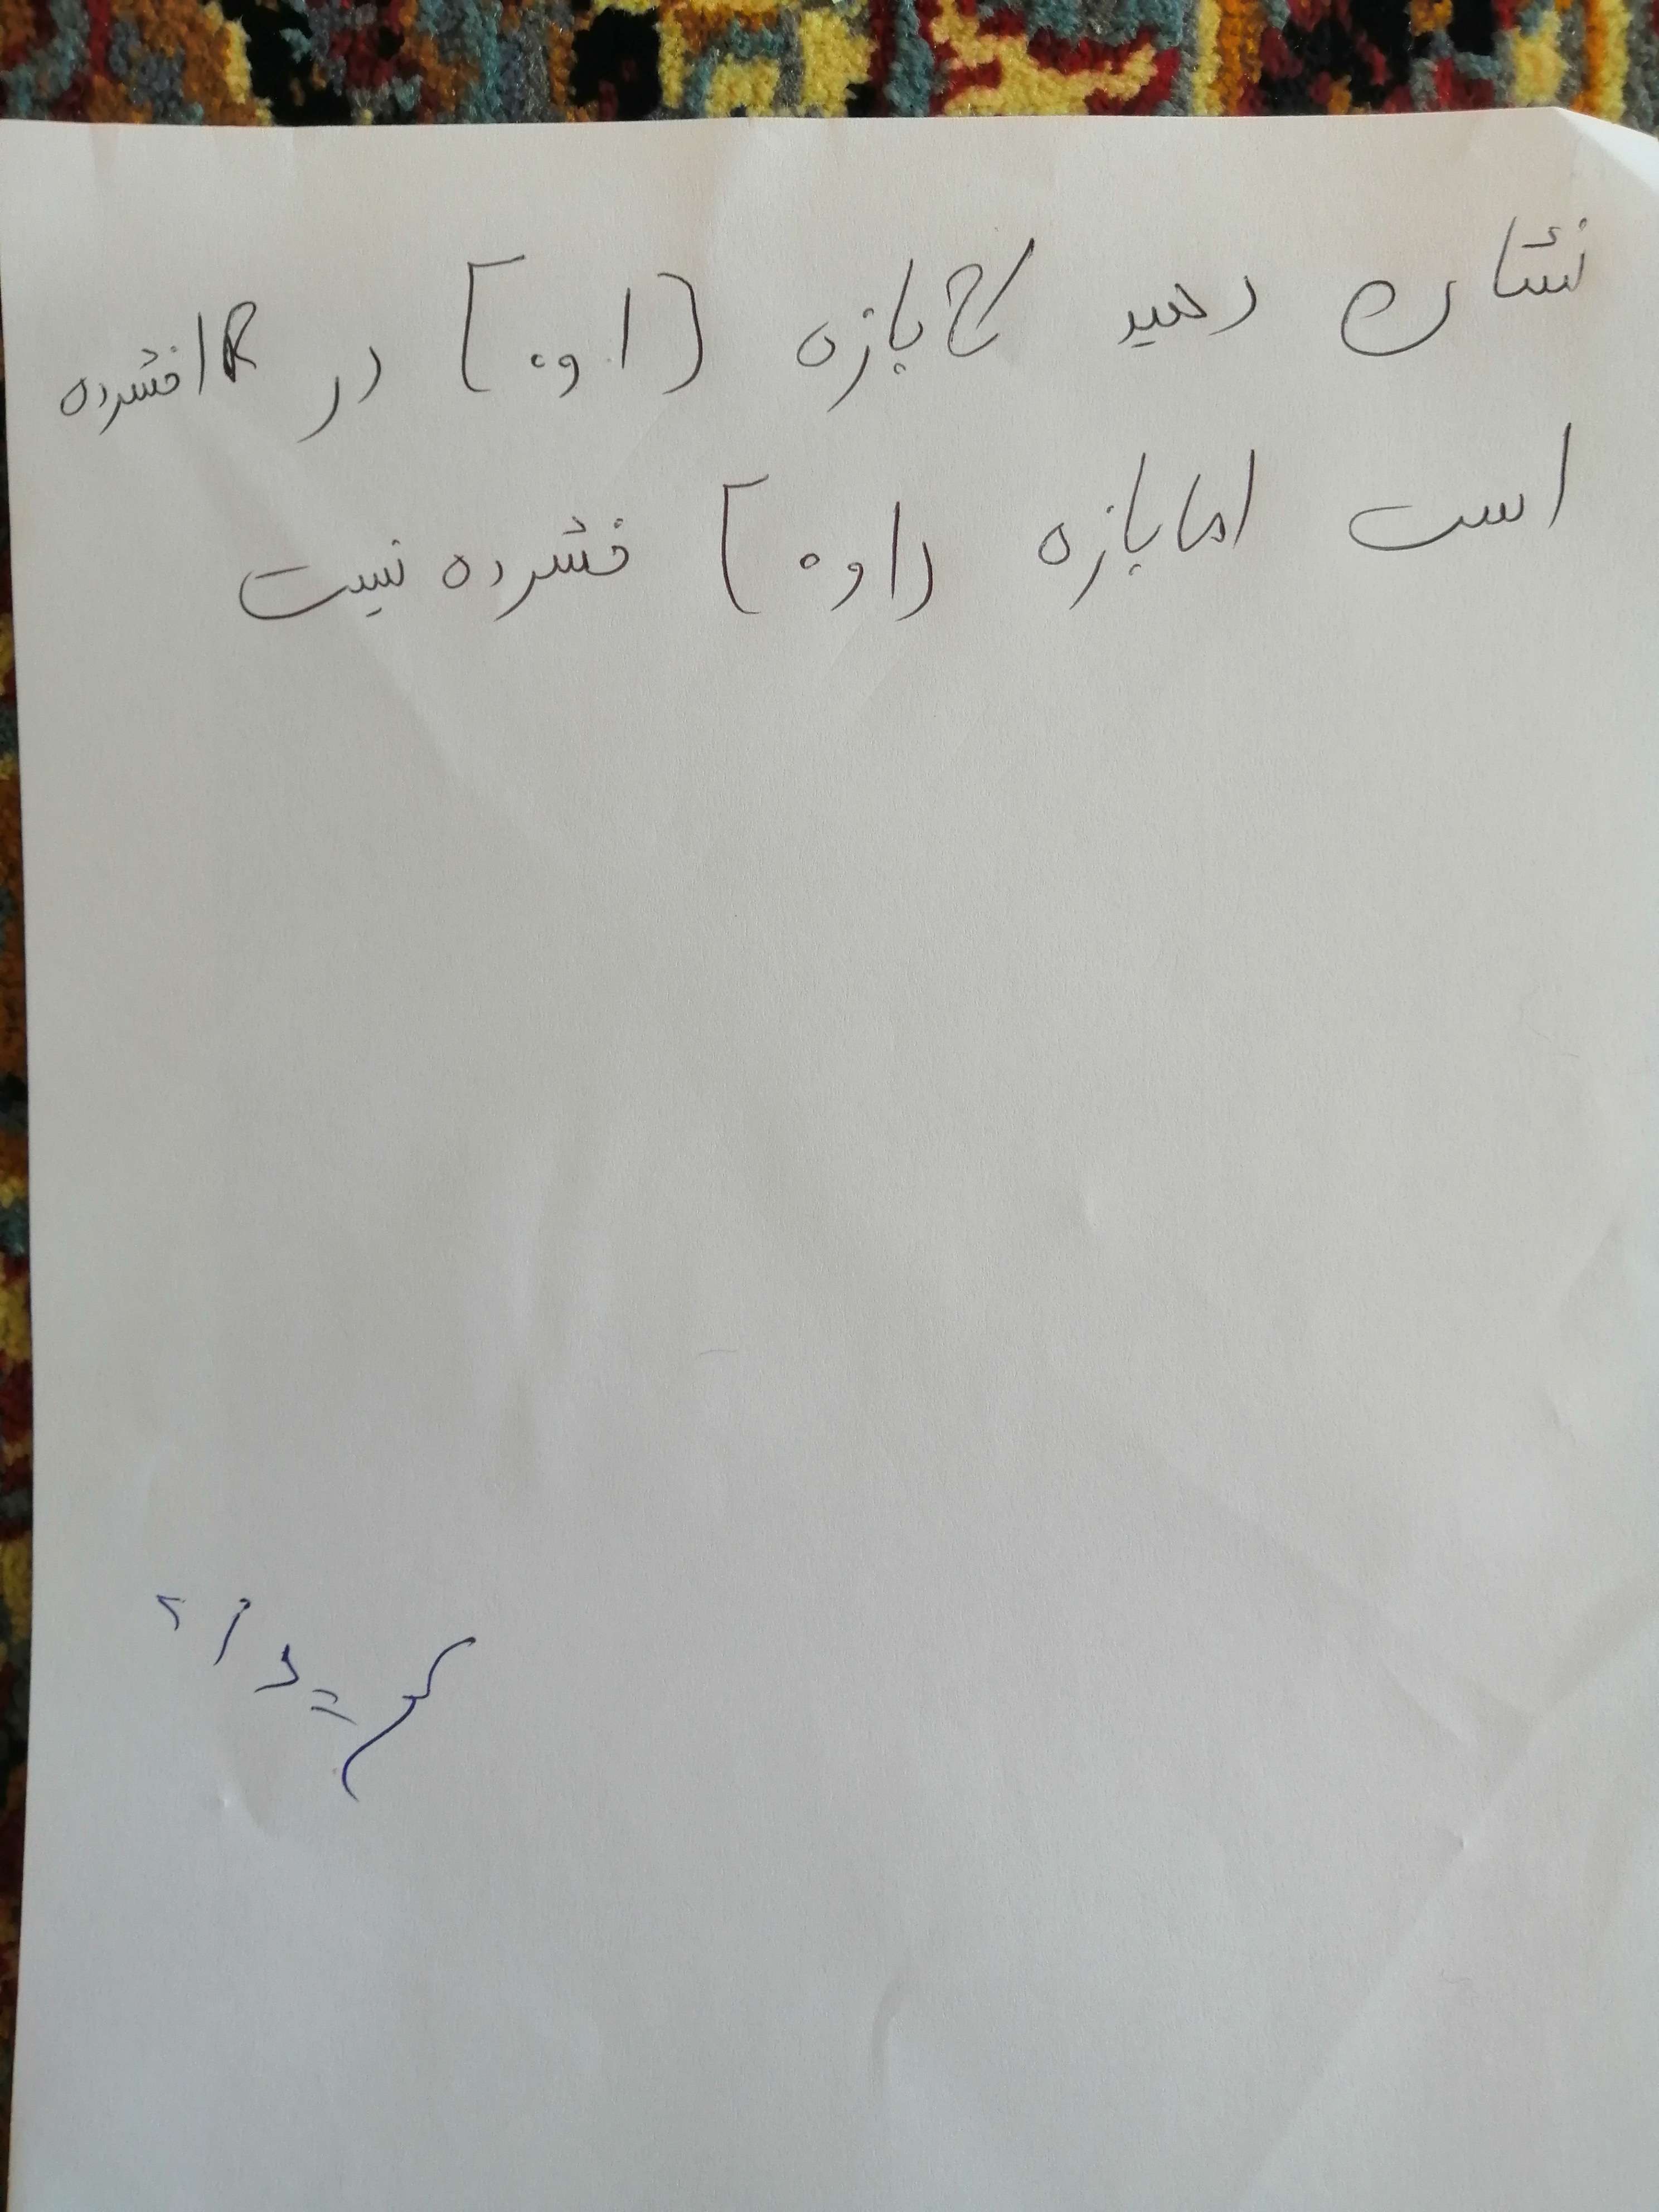 نشان دهید که بازه [0و1] در R فشرده
است اما بازه [0و1) فشرده نیست